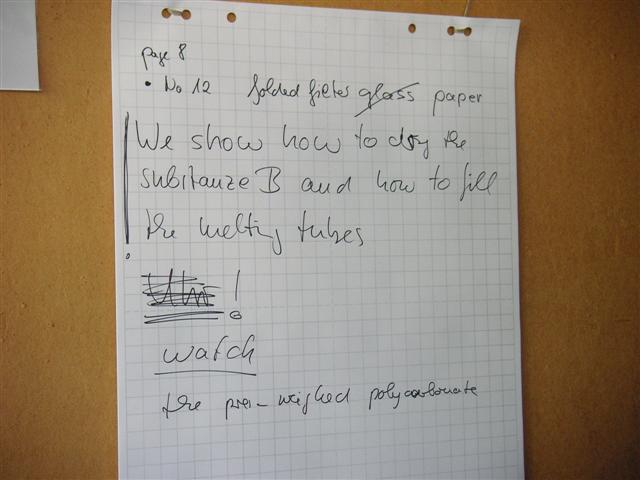 page 8
• No 12 folded filter glass paper
We show how to dry the
substanze B and how to fill
the melting tubes
Uhr !
watch
the pre-weighed polycarbonate